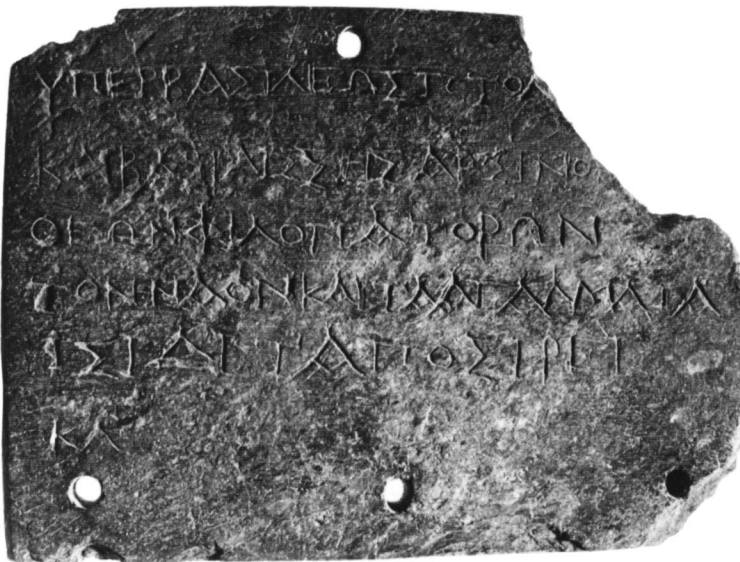 ΥΠΕΡΒΑΣΙΛΕΩΣΠΤΟΛ
ΚΑΙΒΑΣΙΛΙΣΣΗΣΑΡΣΙΝΟ
ΘΕΩΝΦΙΛΟΠΑΤΟΡΩΝ
ΤΟΝΝΑΟΝΚΑΙΤΑΑΓΑΛΜΑΤΑ
ΙΣΙΔΙΤΑΠΟΣΙΡΕΙ
ΚΑ